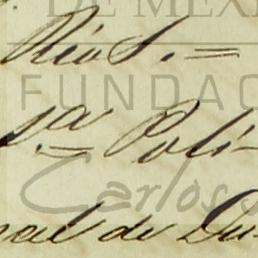 DE MÉXI
Rios. =
FUNDAC
s.ª = Poli-
Carlos S
cal de Du-